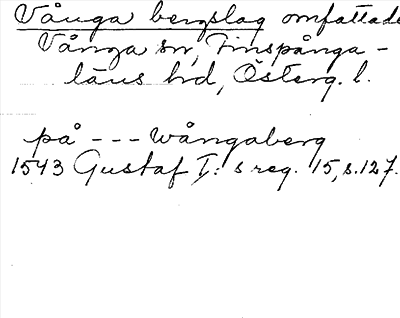 Vånga bergslag omfattade
Vånga sn, Finspånga-
läns hd, Österg. l.
på --- Wångaberg
1543 Gustaf I:s reg. 15, s. 127.